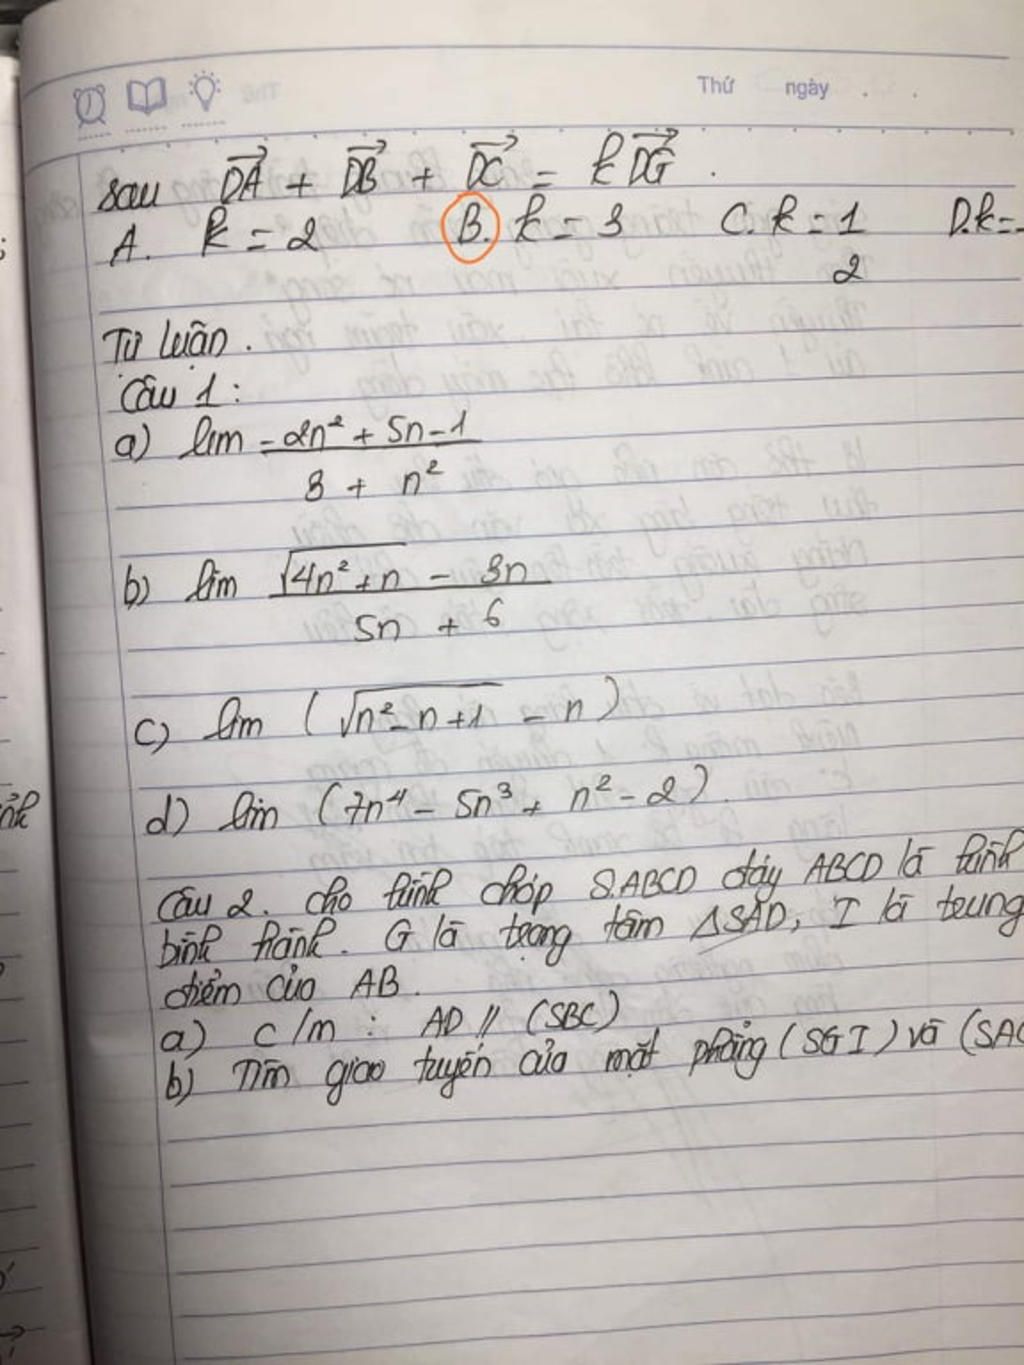 Thứ ngày . .
sau DA + DB + DC = k DG .
A. k = 2 B. k = 3 C. k = 1 D. k =
2
Tự luận .
Câu 1 :
a) lim -2n² + 5n - 1
3 + n²
b) lim √4n² + n - 3n
5n + 6
c) lim ( √n² - n + 1 - n )
d) lim (7n⁴ - 5n³ + n² - 2)
Câu 2. cho hình chóp S.ABCD đáy ABCD là hình
bình hành. G là trọng tâm ΔSAD, I là trung
điểm của AB.
a) c/m : AD // (SBC)
b) Tìm giao tuyến của mặt phẳng (SGI) và (SAC